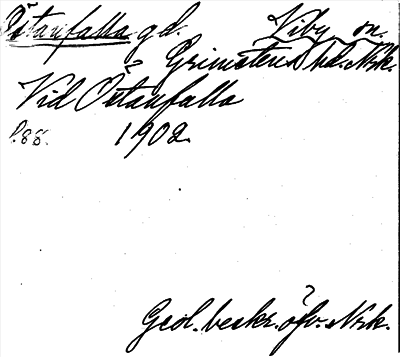 Östanfalla gd. Viby sn.
Grimstens hd. Nrk.
Vid Östanfalla
P. 88. 1902
Geol. beskr. öfv. Nrk.